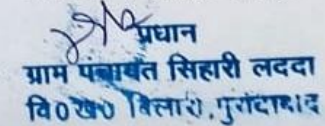 प्रधान
ग्राम पंचायत सिहारी लददा
वि०ख० बिलारी, मुरादाबाद